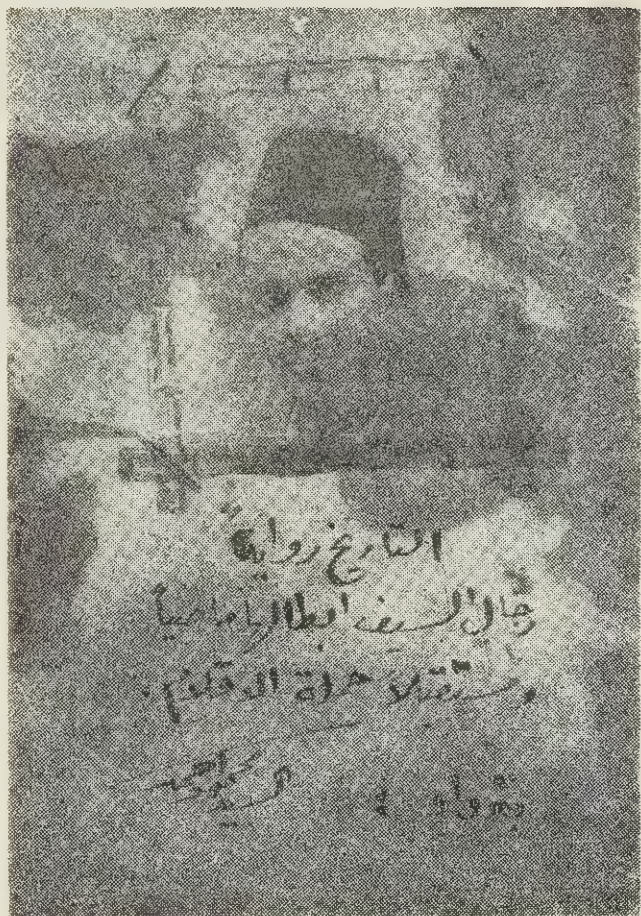 التاريخ رواية
رجال السيف ابطالها ماضياً
ومستقبلاً حملة الاقلام.
السيد